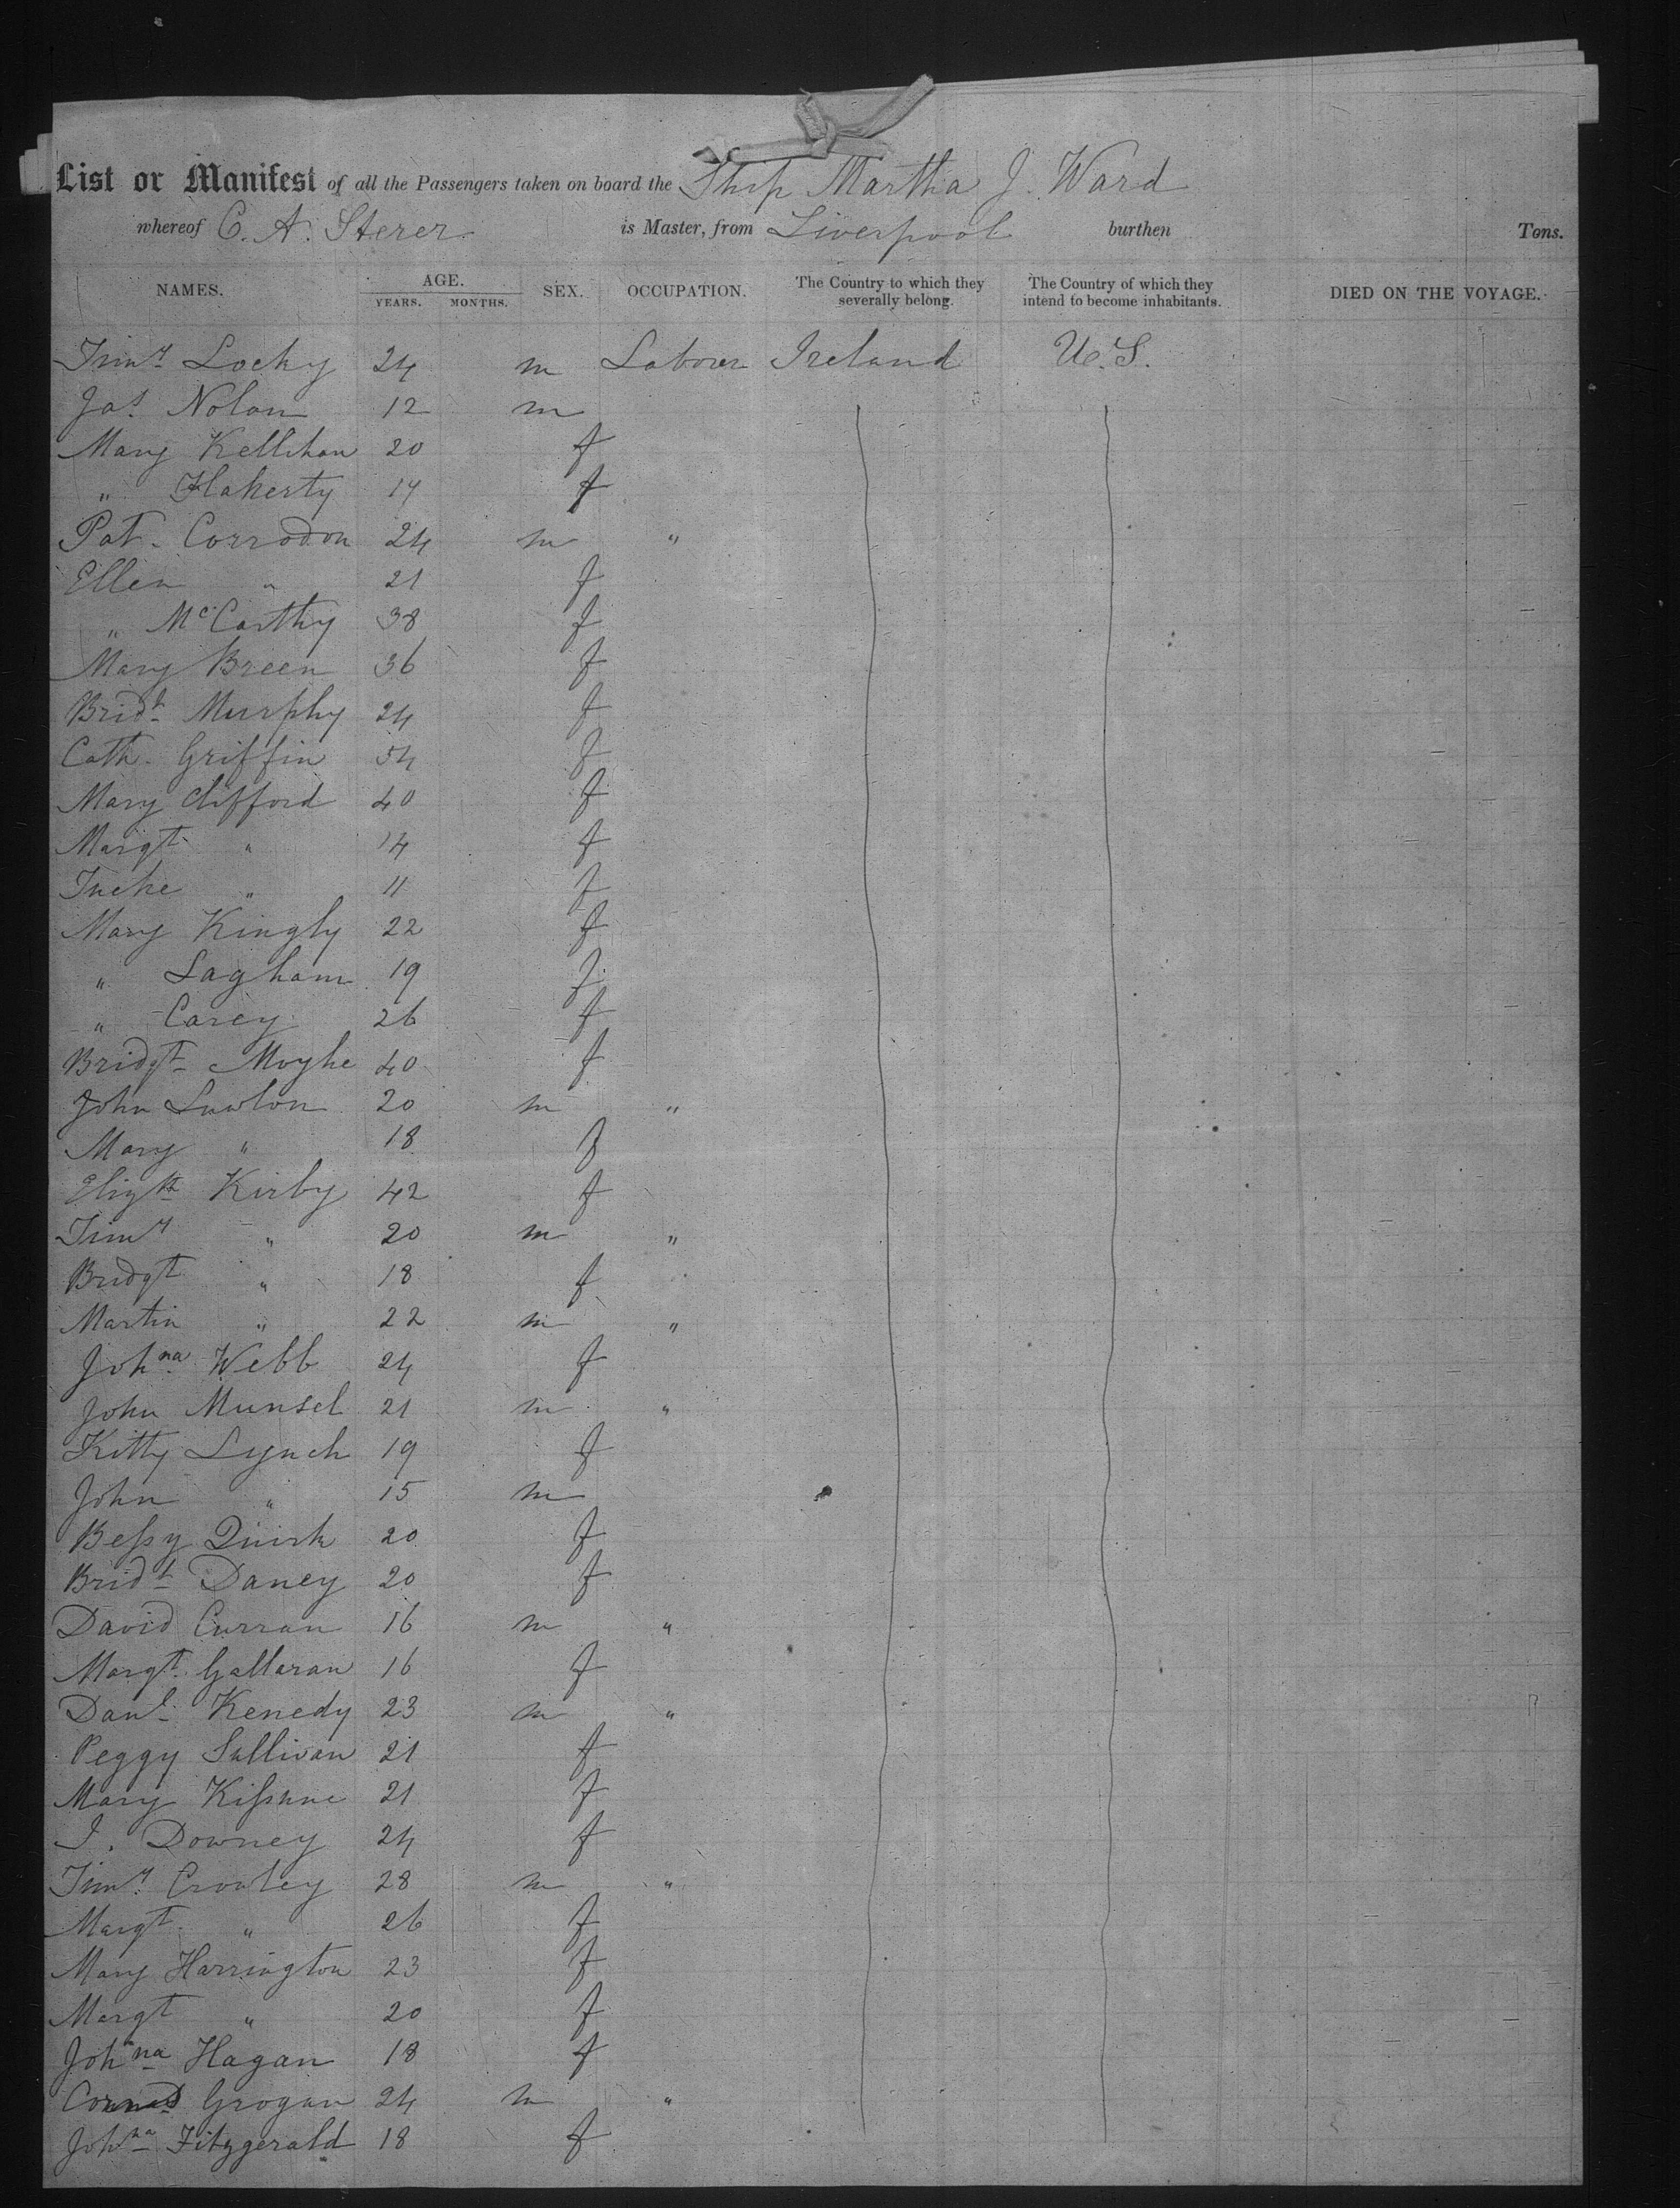 List or Manifest of all the Passengers taken on board the Ship Martha J. Ward
whereof C. A. Sterer is Master, from Liverpool burthen Tons.
NAMES. AGE. YEARS. MONTHS. SEX. OCCUPATION. The Country to which they severally belong. The Country of which they intend to become inhabitants. DIED ON THE VOYAGE.
Timy Locky 24 m Laborer Ireland U.S.
Jas Nolan 12 m
Mary Kellihan 20 f
" Flaherty 17 f
Pat. Corrodon 24 m "
Ellen " 21 f
" McCarthy 38 f
Mary Breen 36 f
Bridt Murphy 24 f
Cath. Griffin 54 f
Mary Clifford 40 f
Margt " 14 f
" 11 f
Mary Kingly 22 f
" Lagham 19 f
" Carey 26 f
Bridgt Moyhe 40 f
John Lawlon 20 m "
Mary " 18 f
Elizth Kirby 42 f
Timy " 20 m "
Bridgt " 18 f
Martin " 22 m "
Johna Webb 24 f
John Munsel 21 m "
Kitty Lynch 19 f
John " 15 m
Bessy Quirk 20 f
Bridt Daney 20 f
David Curran 16 m "
Margt Gallaran 16 f
Danl Kenedy 23 m "
Peggy Sullivan 21 f
Mary 21 f
J. Downey 24 f
Timy Crowley 28 m "
Margt " 26 f
Mary Harrington 23 f
Margt " 20 f
Johna Hagan 18 f
Grogan 24 m "
Johna Fitzgerald 18 f